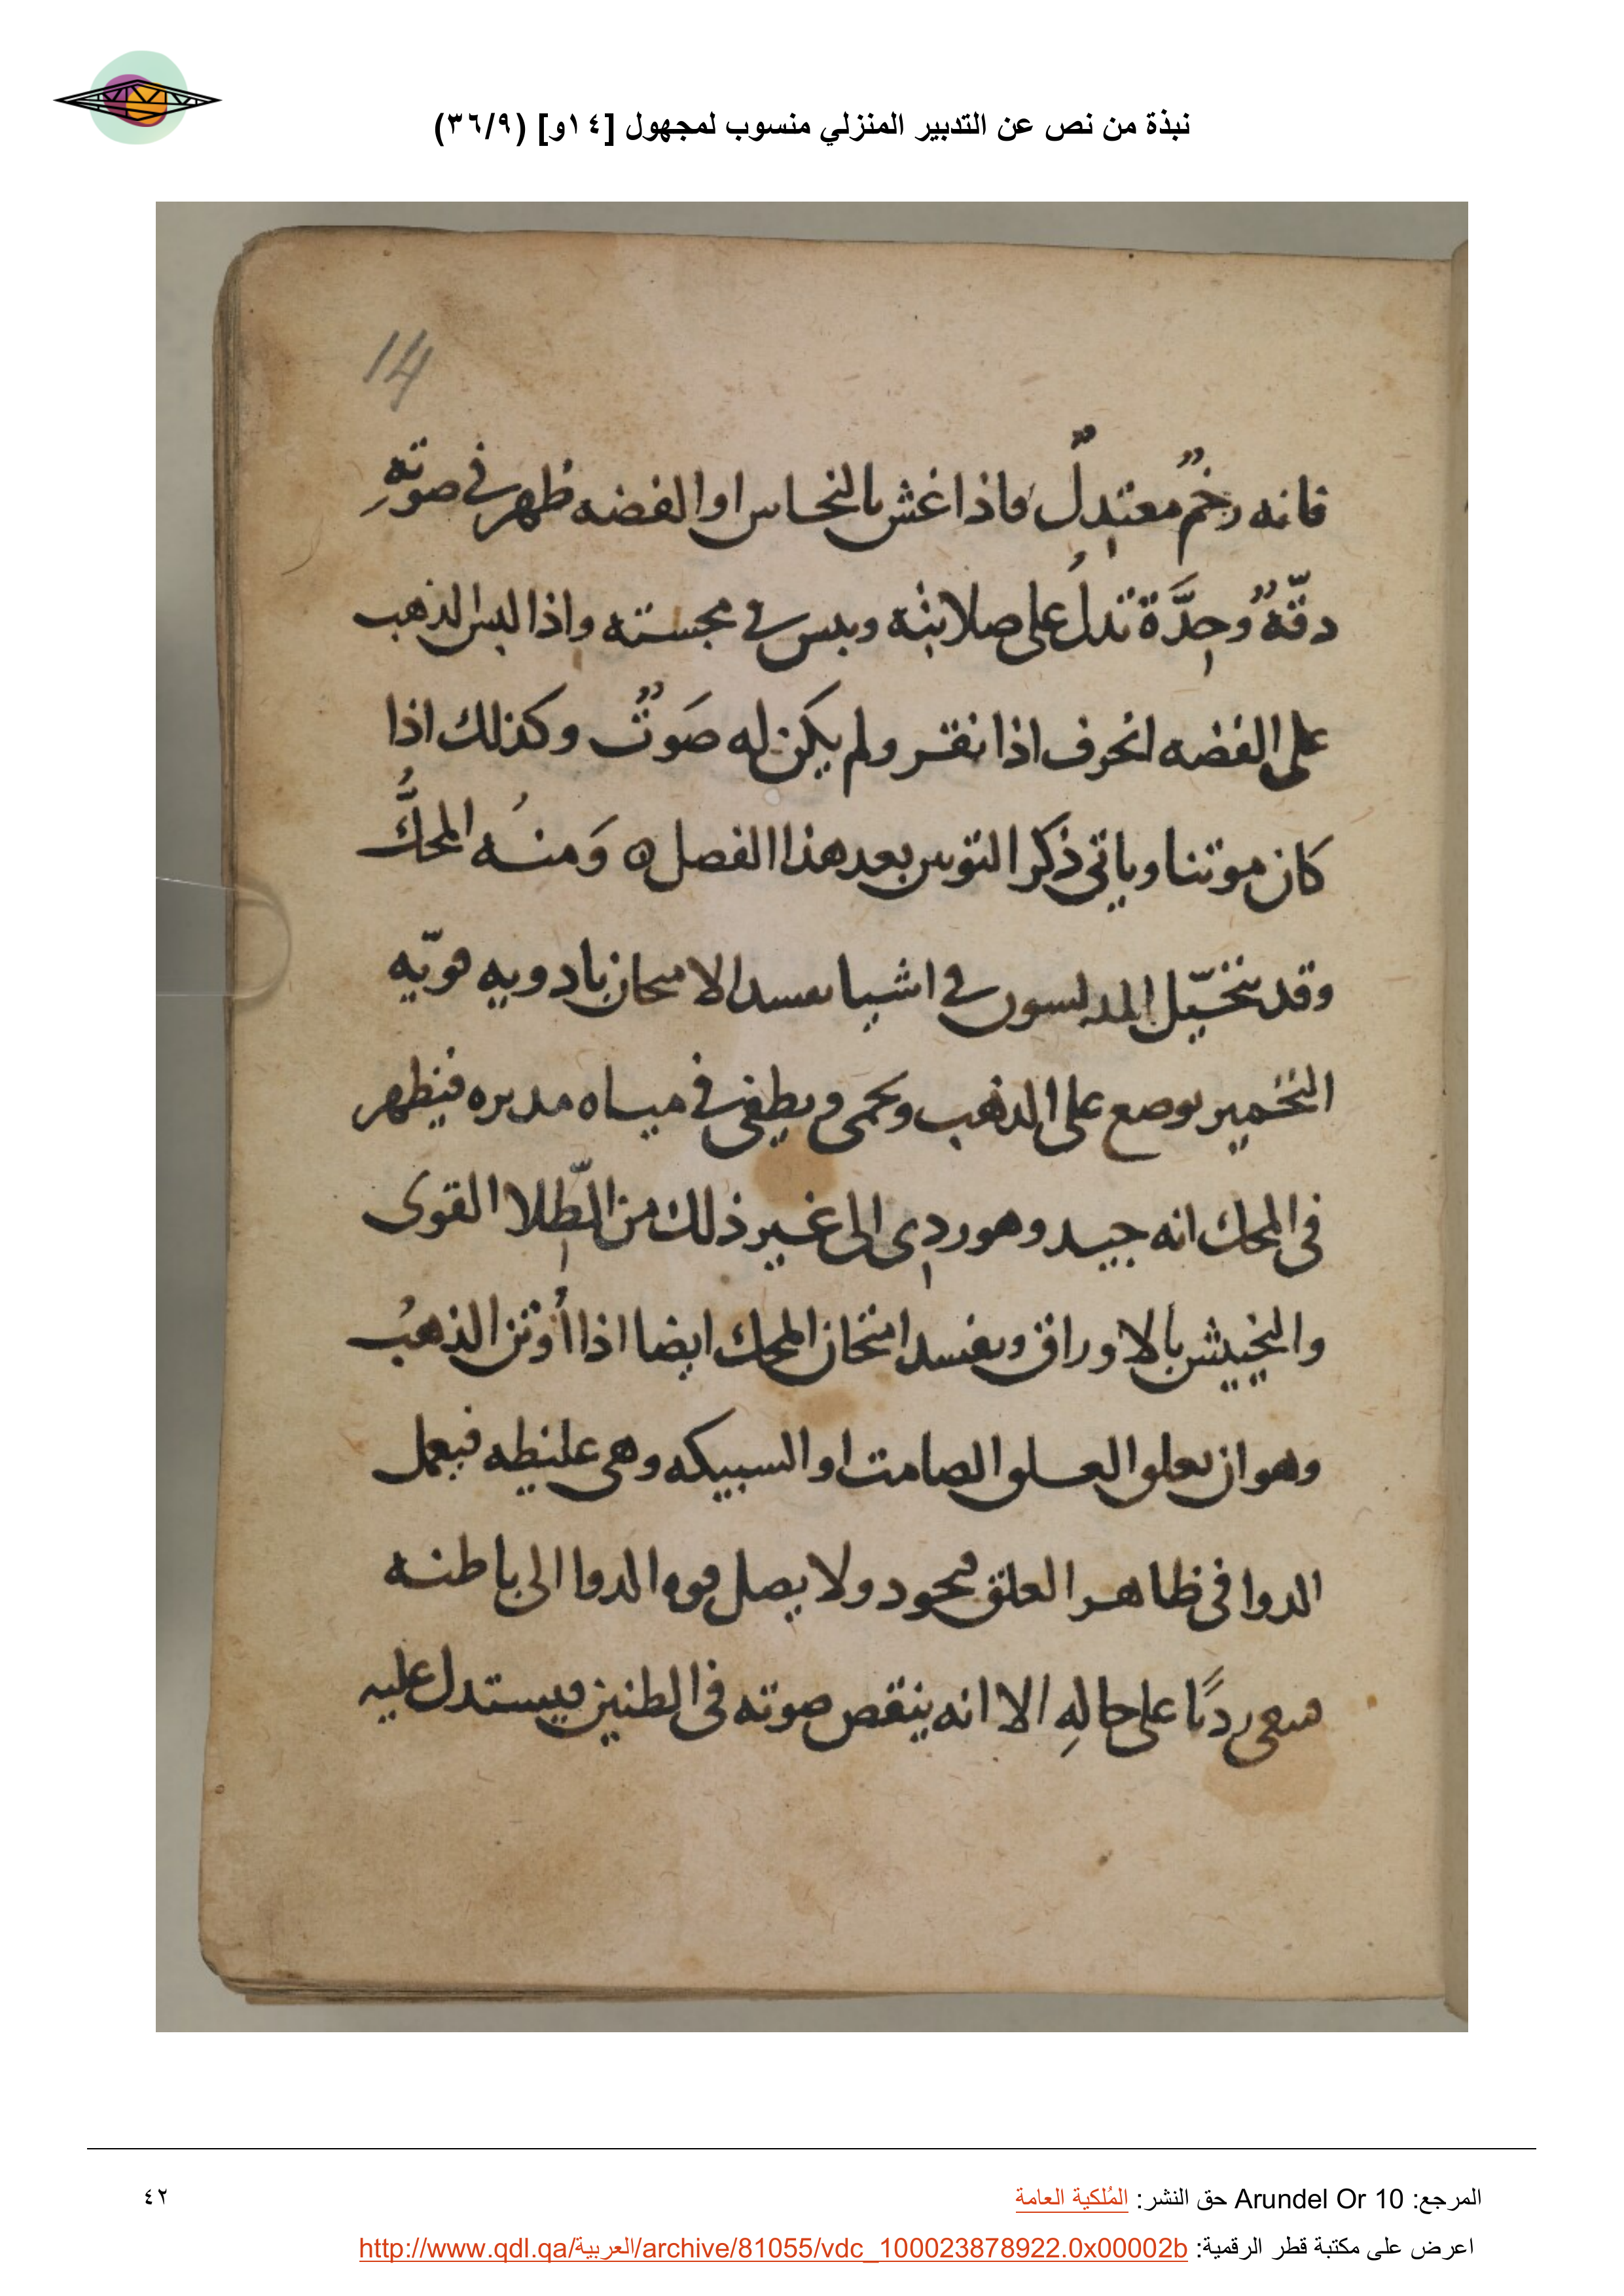 نبذة من نص عن التدبير المنزلي منسوب لمجهول [١٤و] (٣٦/٩)
14
فانه رخمٌ معتدلٌ فاذا غش بالنحاس او الفضه ظهر في صوتهِ
دقّةٌ وحِدَّة تدلُ على صلابته ويبس في مجسته واذا البس الذهب
على الفضه انحرف اذا نقر ولم يكن له صَوتٌ وكذلك اذا
كان موتنا وياتي ذكر التوتين بعد هذا الفصل ه وَمنهُ المحكُّ
وقد يتخيّل المدلسون في اشيا تفسد الامتحان بادويه قويّه
التخمير توضع على الذهب ويحمى ويطفى في مياه مدبره فيظهر
في المحك انه جيد وهو ردى الى غير ذلك من الطّلا القوى
والتخييش بالاوراق ويفسد امتحان المحك ايضا اذا أُوتن الذهبُ
وهو ان يعلق العلق الصامت او السبيكه وهي غليظه فيعمل
الدوا في ظاهر العلق فيجود ولا يصل قوه الدوا الى باطنه
فيبقى رديًا على حالهِ الا انه ينقص صوته في الطنين فيستدل عليه
المرجع: Arundel Or 10 حق النشر: المُلكية العامة
٤٢
اعرض على مكتبة قطر الرقمية: http://www.qdl.qa/العربية/archive/81055/vdc_100023878922.0x00002b